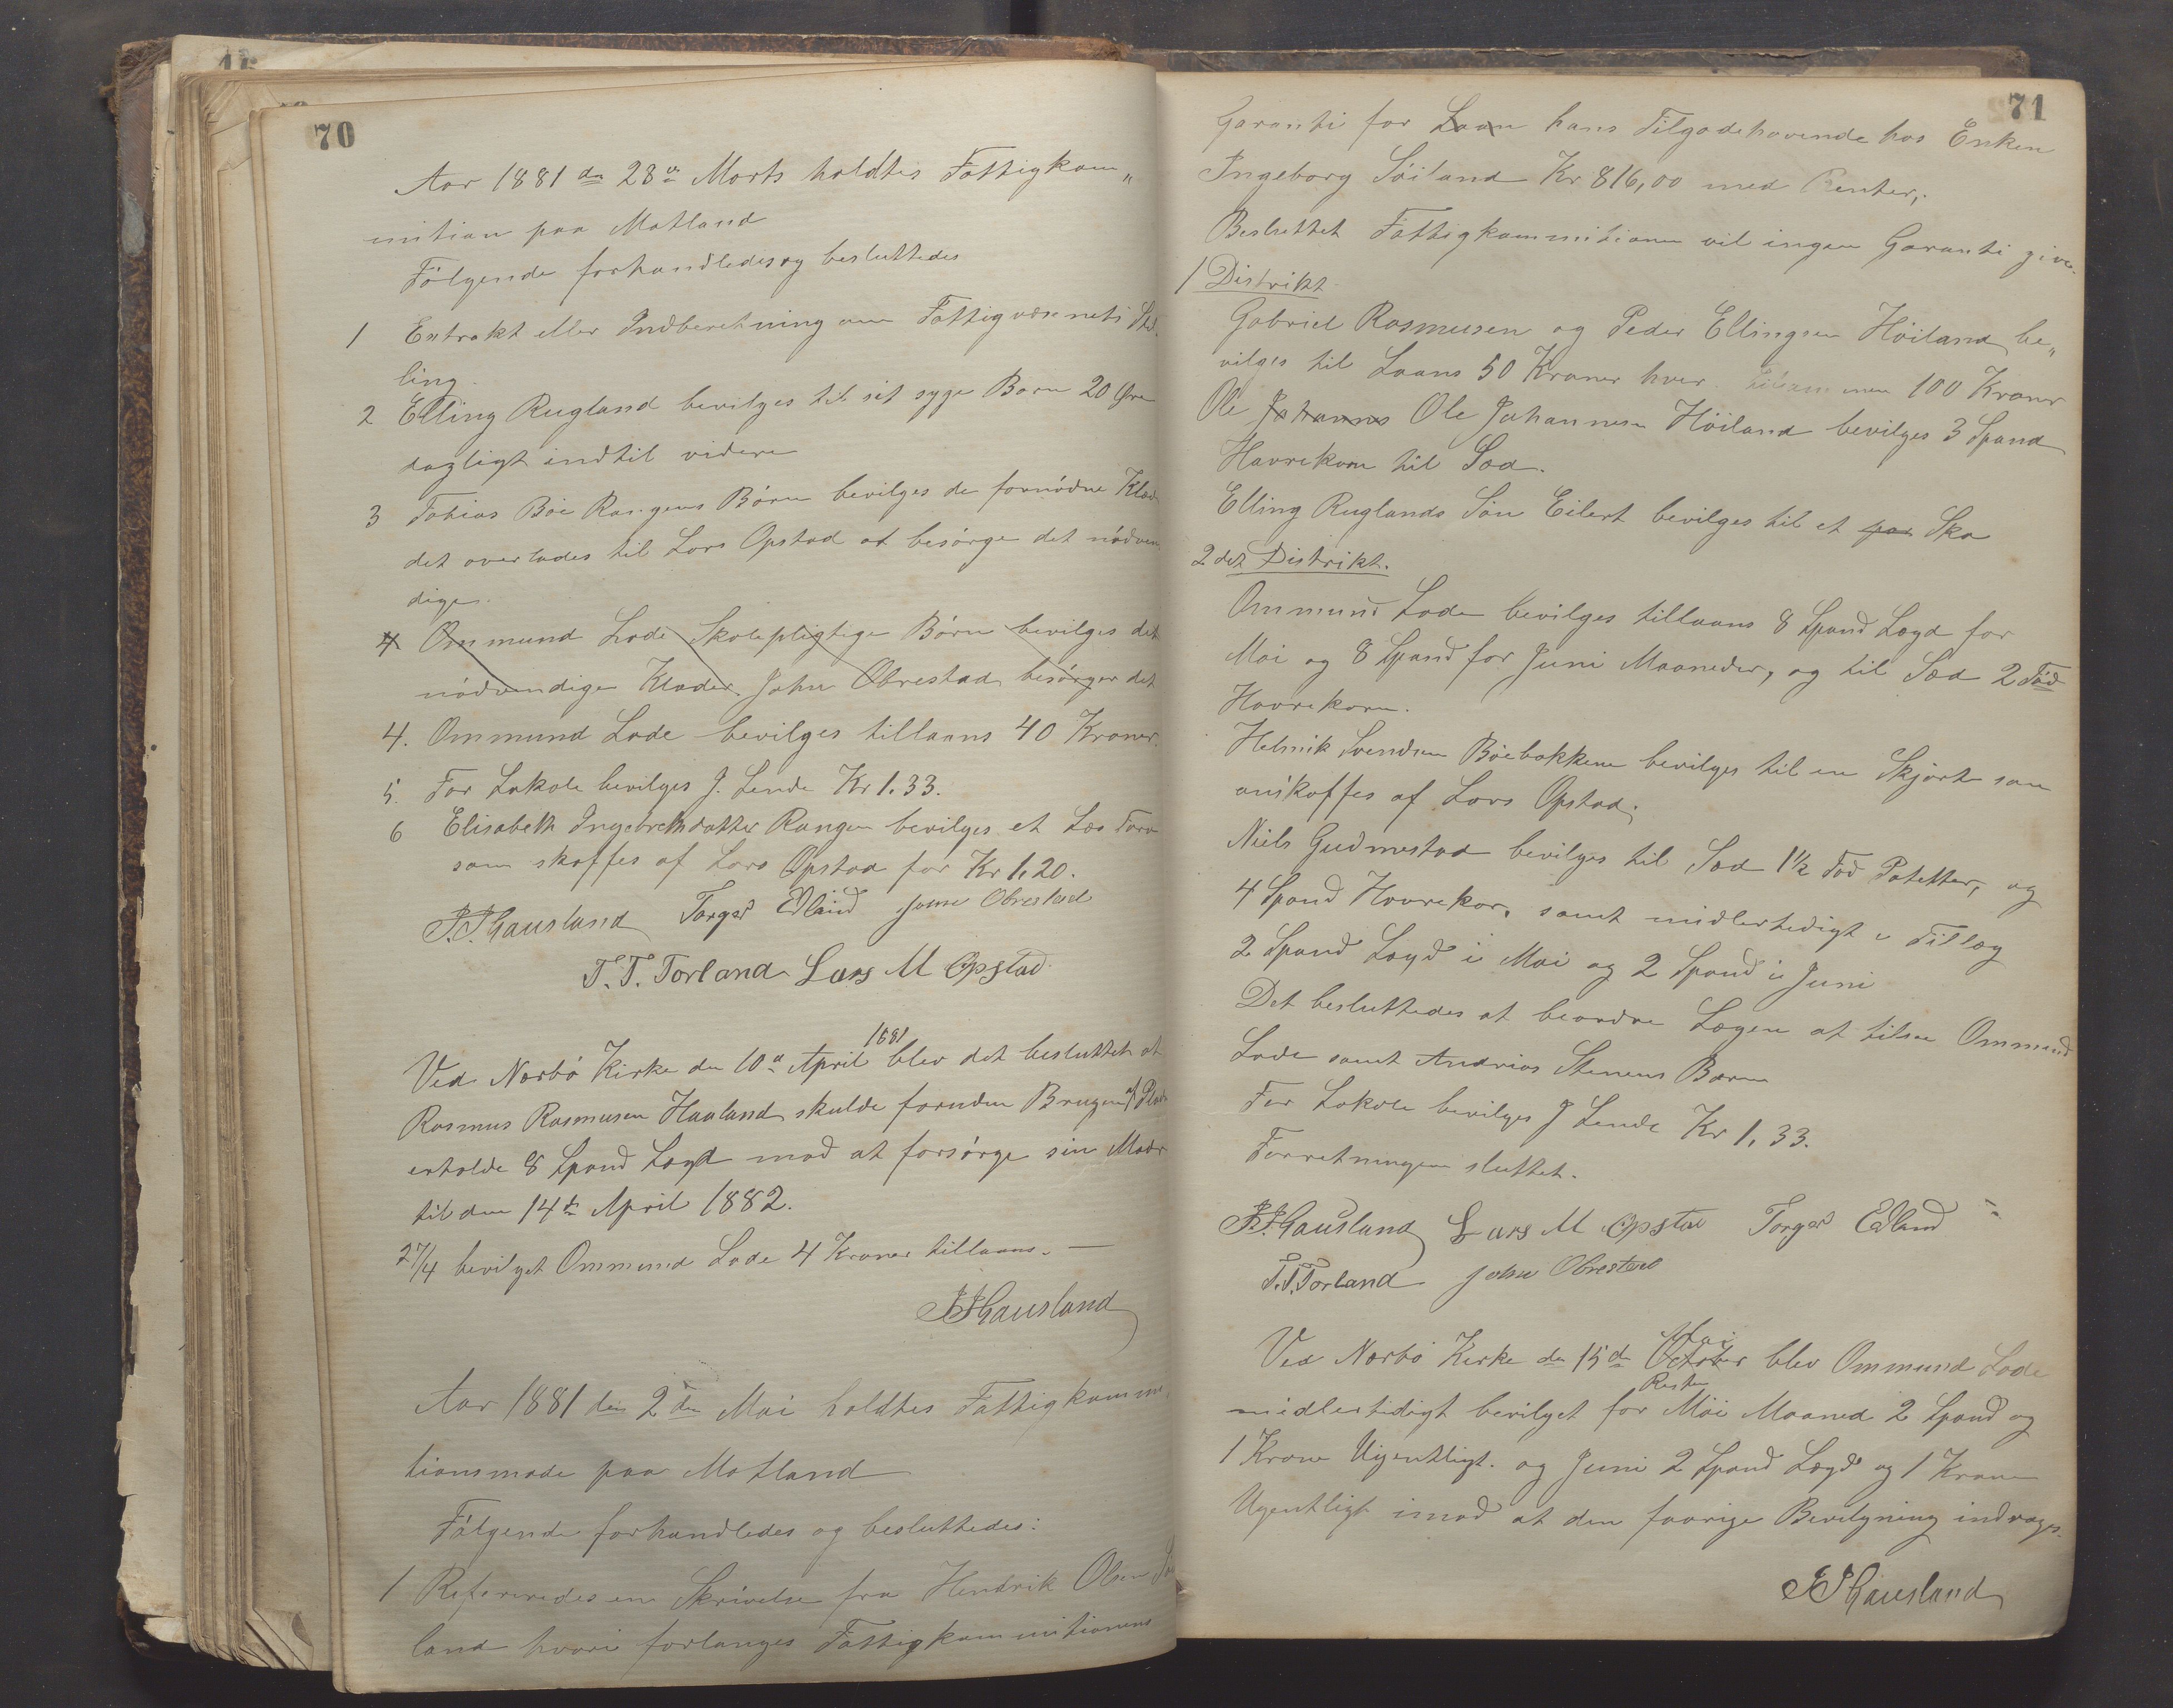 70
Aar 1881 den 28de Marts holdtes Fattigkom„
mition paa Motland
Følgende forhandledes og besluttedes
1 Extrakt eller Indberetning om Fattigvæsenets Stil„
ling.
2 Elling Rugland bevilges til sit syge Barn 20 Øre
dagligt indtil videre
3 Tobias Böe Rangens Börn bevilges de fornödne Klæd
det overlades til Lars Opstad at besörge det nödven
dige.
4 Ommund Lode Skolepligtige Börn bevilges det
nödvendige Klæder. John Obrestad besörger det
4. Ommund Lode bevilges tillaans 40 Kroner.
5. For Lokale bevilges J. Lende Kr 1.33.
6 Elisabeth Ingebrethsdatter Rangen bevilges et Læs Torv
som skaffes af Lars Opstad for Kr 1,20.
J.J. Gausland Torger Edland John Obrestad
T. T. Torland Lars M Opstad
Ved Nærbö Kirke den 10de April 1881 blev det besluttet at
Rasmus Rasmusen Haaland skulde foruden Brugen af Plads
erholde 8 Spand Lægd mod at forsörge sin Moder
til den 14de April 1882.
27/4 bevilget Ommund Lode 4 Kroner tillaans. —
JJGausland
Aar 1881 den 2den Mai holdtes Fattigkommi„
tionsmøde paa Motland
Følgende forhandledes og besluttedes:
1 Refereredes en Skrivelse fra Hendrik Olsen
land hvori forlanges Fattigkommitionens
71
Garanti for Laan hans Tilgodehavende hos Enken
Ingeborg Söiland Kr 816,00 med Renter,.
Besluttet Fattigkommitionen vil ingen Garanti give.
1 Distrikt
Gabriel Rasmusen og Peder Ellingsen Höiland be„
vilges til Laans 50 Kroner hver tilsammen 100 Kroner
Ole Johannes Ole Johannesen Höiland bevilges 3 Spand
Havrekorn til Sæd.
Elling Ruglands Sön Eilert bevilges til et par Sko
2det Distrikt.
Ommund Lode bevilges tillaans 8 Spand Lægd for
Mai og 8 Spand for Juni Maaneder, og til Sæd 2 Töd
Havrekorn.
Helmik Svendsen Böebakkene bevilges til en Skjorte som
anskaffes af Lars Opstad.
Niels Gudmestad bevilges til Sæd 1½ Töd Potetter, og
4 Spand Havrekor. samt midlertidigt i Tillæg
2 Spand Lægd i Mai og 2 Spand i Juni
Det besluttedes at beordre Lægen at tilsee Ommund
Lode samt Andrias Stenens Barn
For Lokale bevilges J Lende Kr 1,33.
Forretningen sluttet.
JJGausland Lars M Opstad Torger Edland
T.T.Torland John Obrestad
Ved Nærbö Kirke den 15de October Mai blev Ommund Lode
midlertidigt bevilget for Resten Mai Maaned 2 Spand og
1 Krone Ugentligt. og Juni 2 Spand Lægd og 1 Krone
Ugentligt imod at den forrige Bevilgning inddrages.
JJGausland